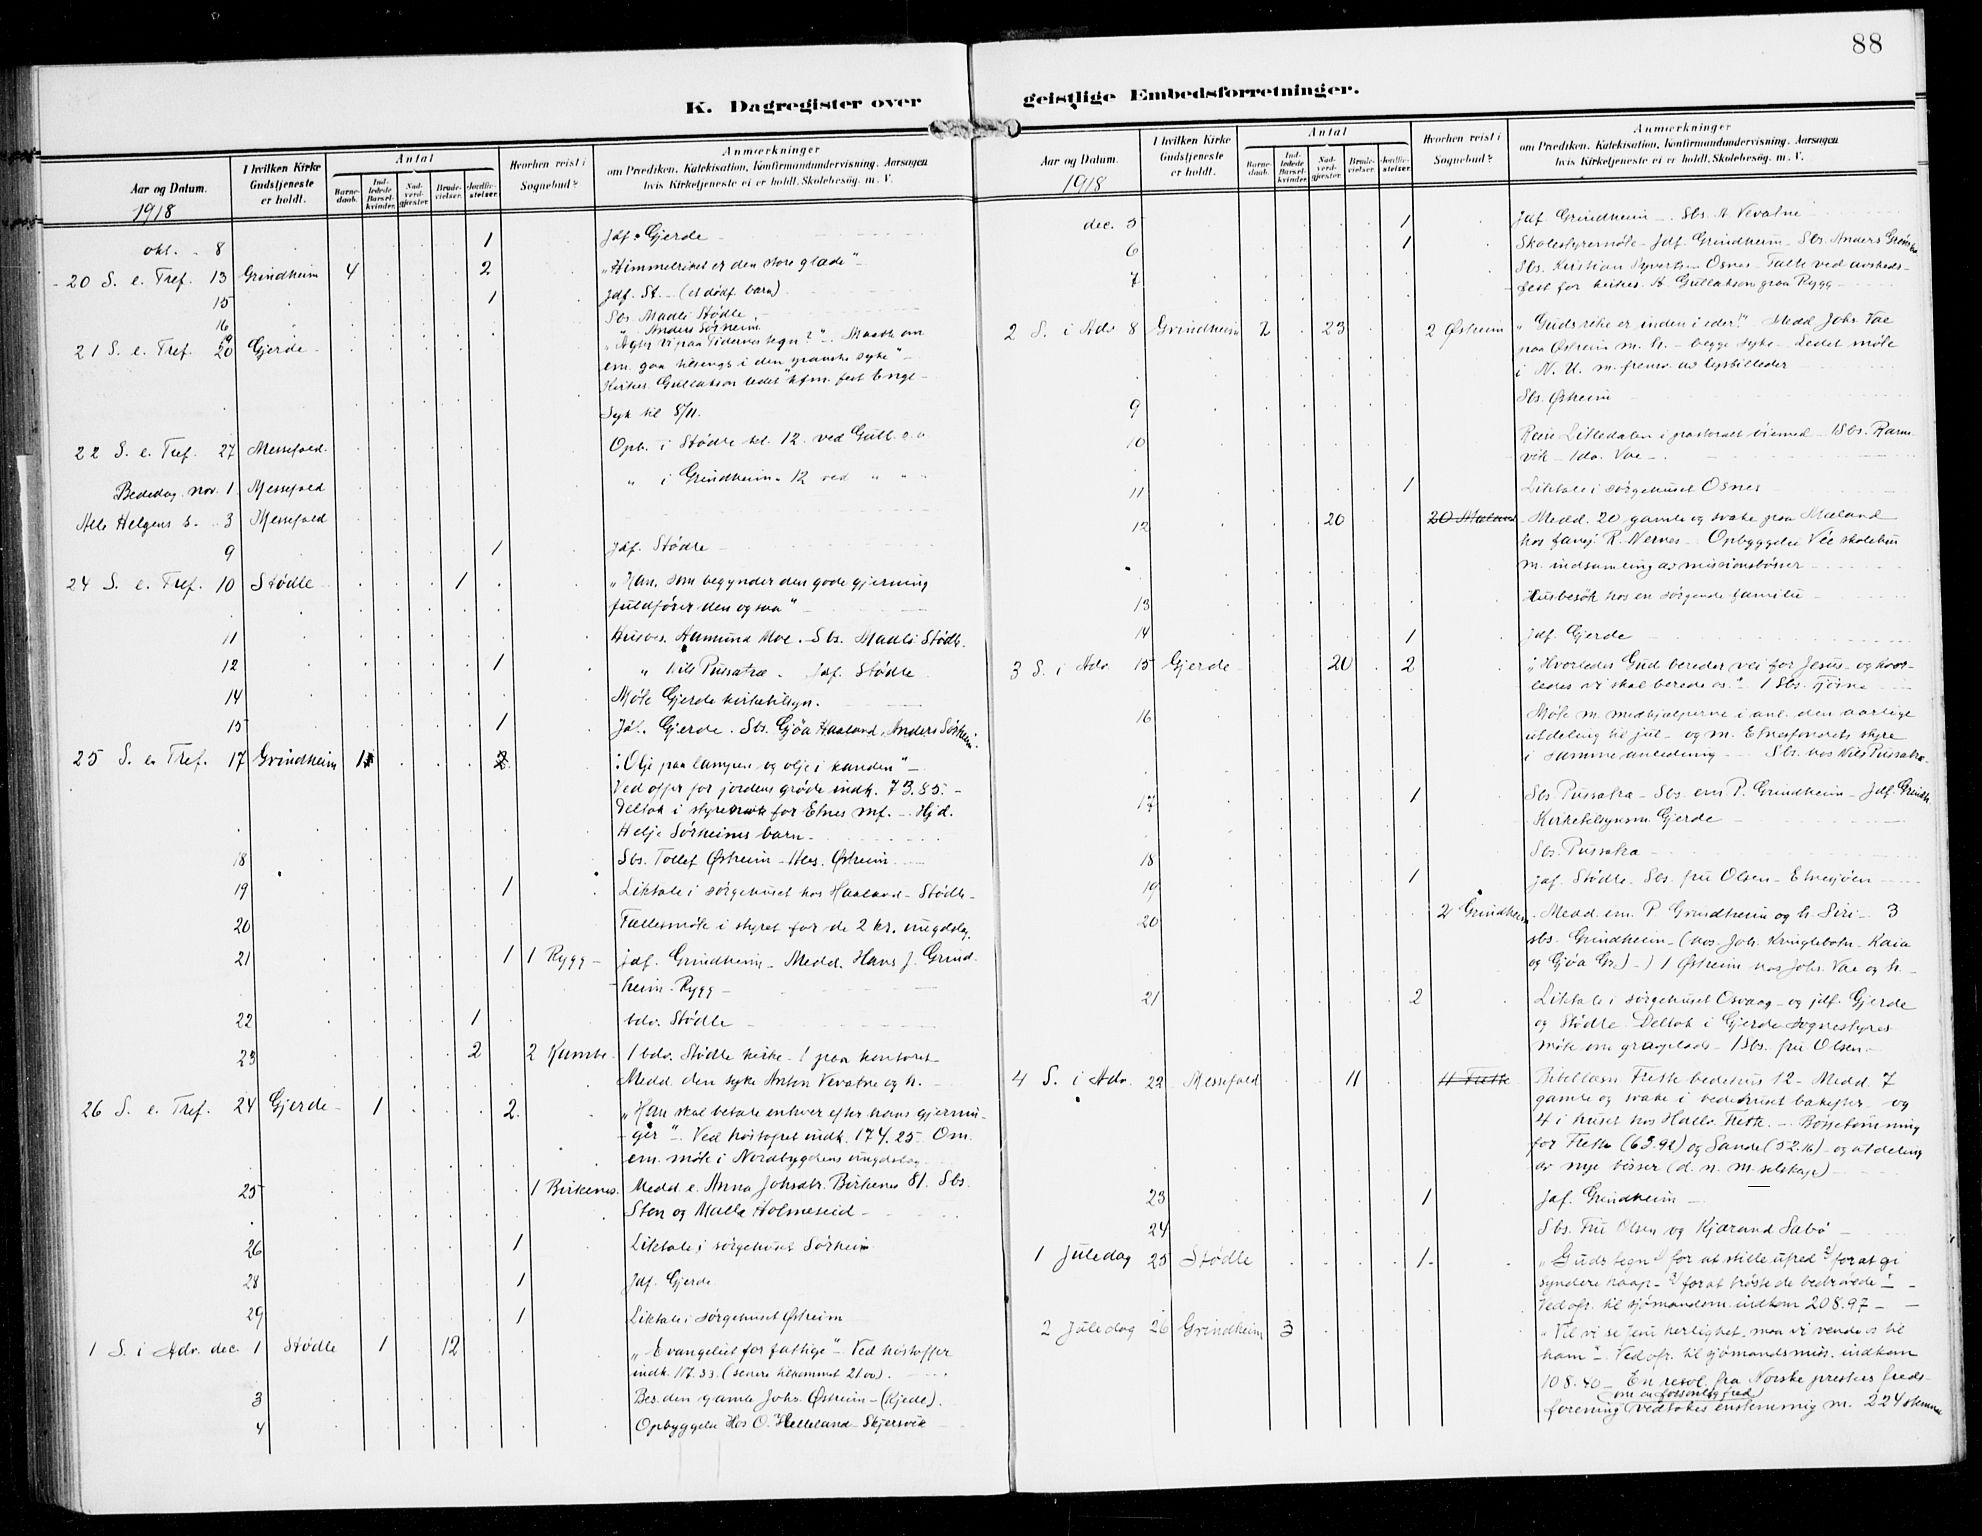 88
K. Dagregister over
geistlige Embedsforretninger.
Aar og Datum. 1918
I hvilken Kirke Gudstjeneste er holdt.
Antal
Barnedaab.
Indledede Barselkvinder.
Nadverdgjæster.
Brudevielser.
Jordfæstelser.
Hvorhen reist i Sognebud?
Anmærkninger
om Prædiken, Katekisation, Konfirmandundervisning, Aarsagen
hvis Kirketjeneste ei er holdt, Skolebesøg, m. V.
okt. 8 1 Jdf. Gjerde
20 S. e. Tref. 13 Grindheim 4 2 "Himmelriket er den store glæde"
15 1 Jdf. St. - (et dødf. barn)
16 Sbs. Madli Stødle
19 " Anders Sørheim
21 S. e. Tref. 20 Gjerde "Agter vi paa Tidernes tegn?" - Maatte om
em. gaa tilsengs i den spanske syke" -
Kirkes. Gullakson ledet kfm. fest Enge
Syk til 8/11.
22 S. e. Tref. 27 Messefald Opb. i Stødle kl. 12 ved Gull.
Bededag nov. 1 Messefald " i Grindheim 12 ved " "
Alle Helgens s. 3 Messefald
9 1 Jdf. Stødle
24 S. e. Tref. 10 Stødle 1 "Han, som begynder den gode gjerning
fuldfører den ogsaa"
11 Husbes. Aamund Moe. Sbs. Madli Stødle
12 1 " Nils Pussatræ. Jdf. Stødle
14 Møte Gjerde kirketilsyn.
15 1 Jdf. Gjerde. Sbs. Gjøa Haaland, Anders Sørheim.
25 S. e. Tref. 17 Grindheim 1 2 "Olje paa lampen og olje i kanden" -
Ved offer for jordens grøde indk. 73.85. -
Deltok i styremøte for Etnes mf. - Hjd.
Helje Sørheims barn.
18 Sbs. Tollef Østreim - Hes. Østreim
19 1 Liktale i sørgehuset hos Haaland - Stødle -
20 Fællesmøte i styret for de 2 kr. ungdslg.
21 1 1 Rygg - Jdf. Grindheim - Medd. Hans J. Grind-
heim - Rygg -
22 1 bdv. Stødle -
23 2 2 Kambe 1 bdv. Stødle kirke - 1 paa kontoret -
Medd. den syke Anton Vevatne og h. -
26 S. e. Tref. 24 Gjerde 1 2 "Han skal betale enhver efter hans gjernin-
ger" - Ved høstofret indk. 174.25. Om
em. møte i Nordbygdens ungdslag
25 1 Birkenes. Medd. e. Anna Johsdtr. Birkenes 81. Sbs.
Sten og Malla Holmeseid -
26 1 Liktale i sørgehuset Sørheim
28 1 Jdf. Gjerde
29 1 Liktale i sørgehuset Østreim
1 S. i Adv. dec. 1 Stødle 1 12 "Evangeliet for fattige" - Ved høstoffer
indk. 117.33. (senere tilkommet 21.00).
3 Bes. den gamle Johs. Østreim - (Kjede).
4 Opbyggelse Hos O. Helleland - Skjersvik -
Aar og Datum. 1918
I hvilken Kirke Gudstjeneste er holdt.
Antal
Barnedaab.
Indledede Barselkvinder.
Nadverdgjæster.
Brudevielser.
Jordfæstelser.
Hvorhen reist i Sognebud?
Anmærkninger
om Prædiken, Katekisation, Konfirmandundervisning, Aarsagen
hvis Kirketjeneste ei er holdt, Skolebesøg, m. V.
dec. 5 1 Jdf. Grindheim - Sbs. A. Vevatne
6 1 Skolestyremøte - Jdf. Grindheim - Sbs. Anders
7 Sbs. Kristian Syvertsen Osnes - Talte ved avskeds-
fest for kirkes. A. Gullakson paa Rygg
2 S. i Adv. 8 Grindheim 2 23 2 Østreim "Guds rike er inden i eder." Medd. Johs. Vae
paa Østreim m. h. - begge syke - Ledet møte
i N. U. m. fremv. av lysbilleder
9 Sbs. Østreim
10 Reise Litledalen i pastoralt øiemed - 1 Sbs. Rams-
vik - 1 do. Vae -
11 1 Liktale i sørgehuset Osnes
12 20 20 Mæland Medd. 20 gamle og svake paa Mæland
hos fangj. R. Nernes - Opbyggelse Vee skolehus
m. indsamling av missionsbøsser
13 Husbesøk hos en sørgende familie -
14 1 Jdf. Gjerde
3 S. i Adv. 15 Gjerde 20 2 "Hvorledes Gud bereder vei for Jesus - og hvor-
ledes vi skal berede os." - 1 Sbs. Tjerne
16 Møte m. medhjælperne i anl. den aarlige
utdeling til jul - og m. Etnesfondets styre
i samme anledning - Sbs. hos Nils Pussatræ.
17 1 Sbs. Pussatræ - Sbs. em P. Grindheim - Jdf. Grindh.
Kirketilsynsm. Gjerde -
18 Sbs. Pussatræ -
19 1 Jdf. Stødle. Sbs. fru Olsen - Etnesjøen
20 2 Grindheim Medd. em. P. Grindheim og h. Siri - 3
sbs. Grindheim - (hos Joh. Kringlebotn - Kaia
og Gjøa Gr.) - 1 Østreim hos Johs. Vae og h. -
21 2 Liktale i sørgehuset Osvaag - og jdf. Gjerde
og Stødle. Deltok i Gjerde sognestyres
møte om gravplads - 1 Sbs. fru Olsen -
4 S. i Adv. 22 Messefald 11 11 Frette Bibellæsn. Frette bedehus 12 - Medd. 7
gamle og svake i bedehuset bakefter og
4 i huset hos Hallv. Frette. - Bøssetømming
for Frette (63.92) og Sande (52.16) - og utdeling
av nye bøsser (d. n. m. selskap) -
23 1 Jdf. Grindheim -
24 Sbs. Fru Olsen og Kjærand Sæbø -
1 Juledag 25 Stødle 1 "Guds tegn 1) for at stille ufred 2) for at gi
syndere haap - 3) for at trøste de bedrøvede" -
Ved ofr. til sjømandsm. indkom 208.97 -
2 Juledag 26 Grindheim 3 "Vil vi se Jesu herlighet, maa vi vende os til
ham" - Ved ofr. til sjømandsmiss. indkom
108.40 - En resol. fra Norske presters freds-
(om en forsonlig fred)
forening vedtokes enstemmig m. 224 stemmer